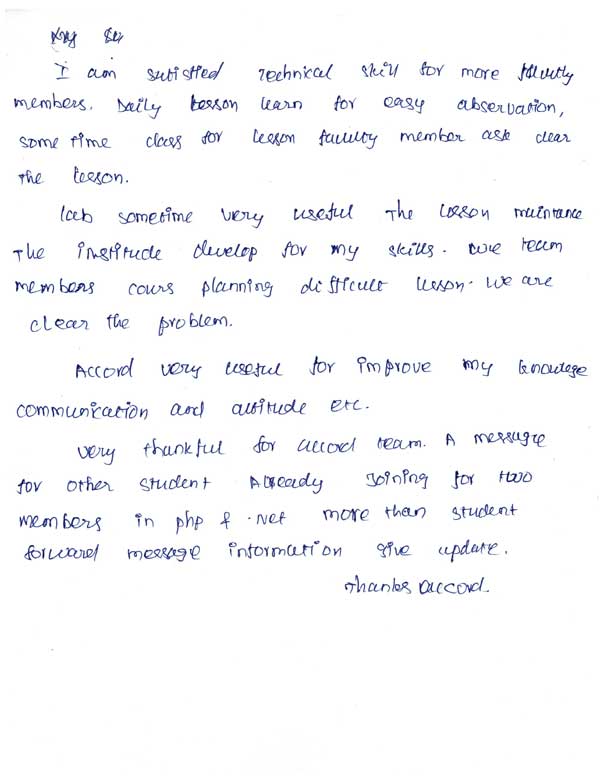 I am sutisfied Technical skill for more falvutly
members. Daily Lesson learn for easy absorvation,
some time class for lesson faculty member ask clear
the lesson.
lab sometime very useful The lesson muintance
The institude develop for my skills. ore team
members cours planning difficult lesson. We are
clear the problem.
Accord very useful for improve my knoulege
communication and attitude etc.
very thankful for accord team. A message
for other student Already Joining for two
members in php & .Net more than student
forward message information give update.
Thanks accord.